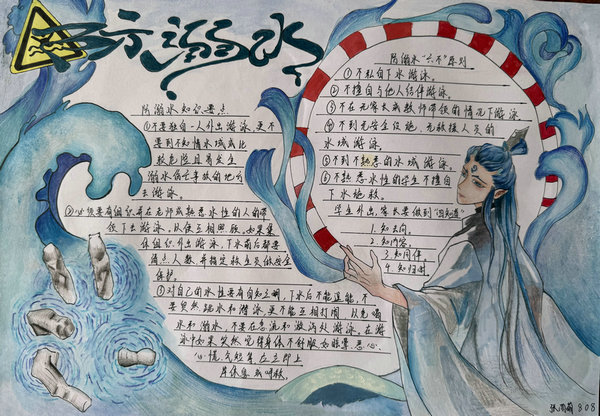 防溺水
防溺水知识要点
①不要独自一人外出游泳,更不
要到不知情水域或比
较危险且易发生
溺水伤亡事故的地方
去游泳。
②必须要有组织并在老师或熟悉水性的人的带
领下去游泳。以便互相照顾。如果集
体组织外出游泳,下水前后都要
清点人数,并指定救生员做安全
保护。
③对自己的水性要有自知之明,下水后不能逞能,不
要贸然跳水和潜泳,更不能互相打闹,以免喝
水和溺水,不要在急流和漩涡处游泳。在游
泳中如果突然觉得身体不舒服如眩晕、恶心、
心慌、气短等,应立即上
岸休息或呼救。
防溺水"六不"原则
①不私自下水游泳。
②不擅自与他人结伴游泳。
③不在无家长或教师带领的情况下游泳。
④不到无安全设施、无救援人员的
水域游泳。
⑤不到不熟悉的水域游泳。
⑥不熟悉水性的学生不擅自
下水施救。
学生外出,家长要做到"四知道"
1.知去向
2.知内容
3.知同伴
4.知归时
808